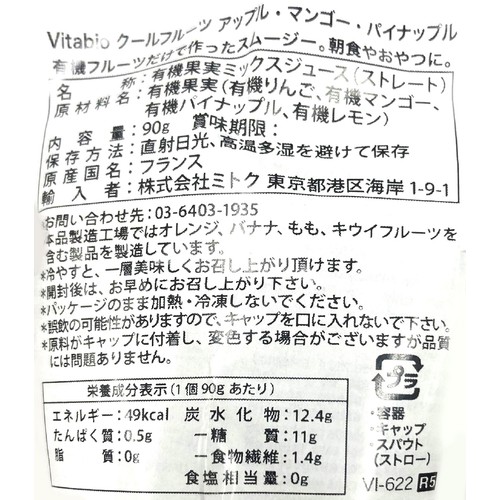 Vitabio クールフルーツ アップル・マンゴー・パイナップル
有機フルーツだけで作ったスムージー。朝食やおやつに。
名 称：有機果実ミックスジュース（ストレート）
原材料名：有機果実（有機りんご、有機マンゴー、
有機パイナップル、有機レモン）
内容量：90g 賞味期限：
保存方法：直射日光、高温多湿を避けて保存
原産国名：フランス
輸入者：株式会社ミトク 東京都港区海岸1-9-1
*お問い合わせ先：03-6403-1935
本品製造工場ではオレンジ、バナナ、もも、キウイフルーツを
含む製品を製造しています。
*冷やすと、一層美味しくお召し上がり頂けます。
*開封後は、お早めにお召し上がり下さい。
*パッケージのまま加熱・冷凍しないでください。
*誤飲の可能性がありますので、キャップを口に入れないで下さい。
*原料がキャップに付着し、変色する場合がございますが品質
には問題ありません。
栄養成分表示（1個90gあたり）
エネルギー：49kcal 炭水化物：12.4g
たんぱく質：0.5g ー糖質：11g
脂質：0g ー食物繊維：1.4g
食塩相当量：0g
プラ
・容器
・キャップ
・スパウト
（ストロー）
VI-622 R5